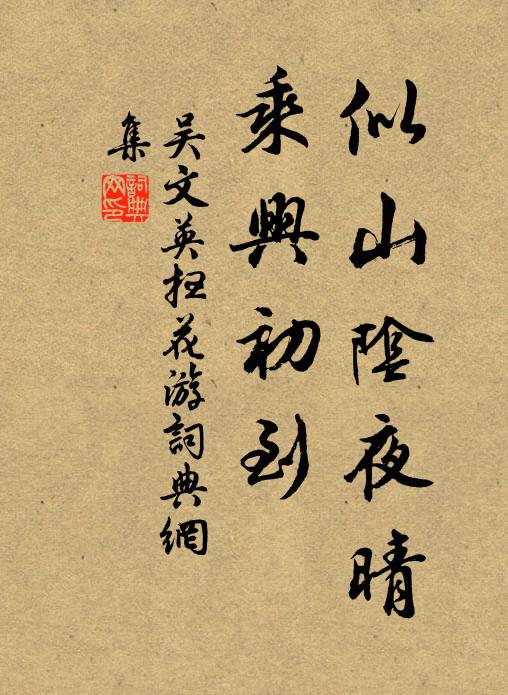 似山陰夜晴
乘興初到
吳文英掃花游詞典網
集
詞典網印